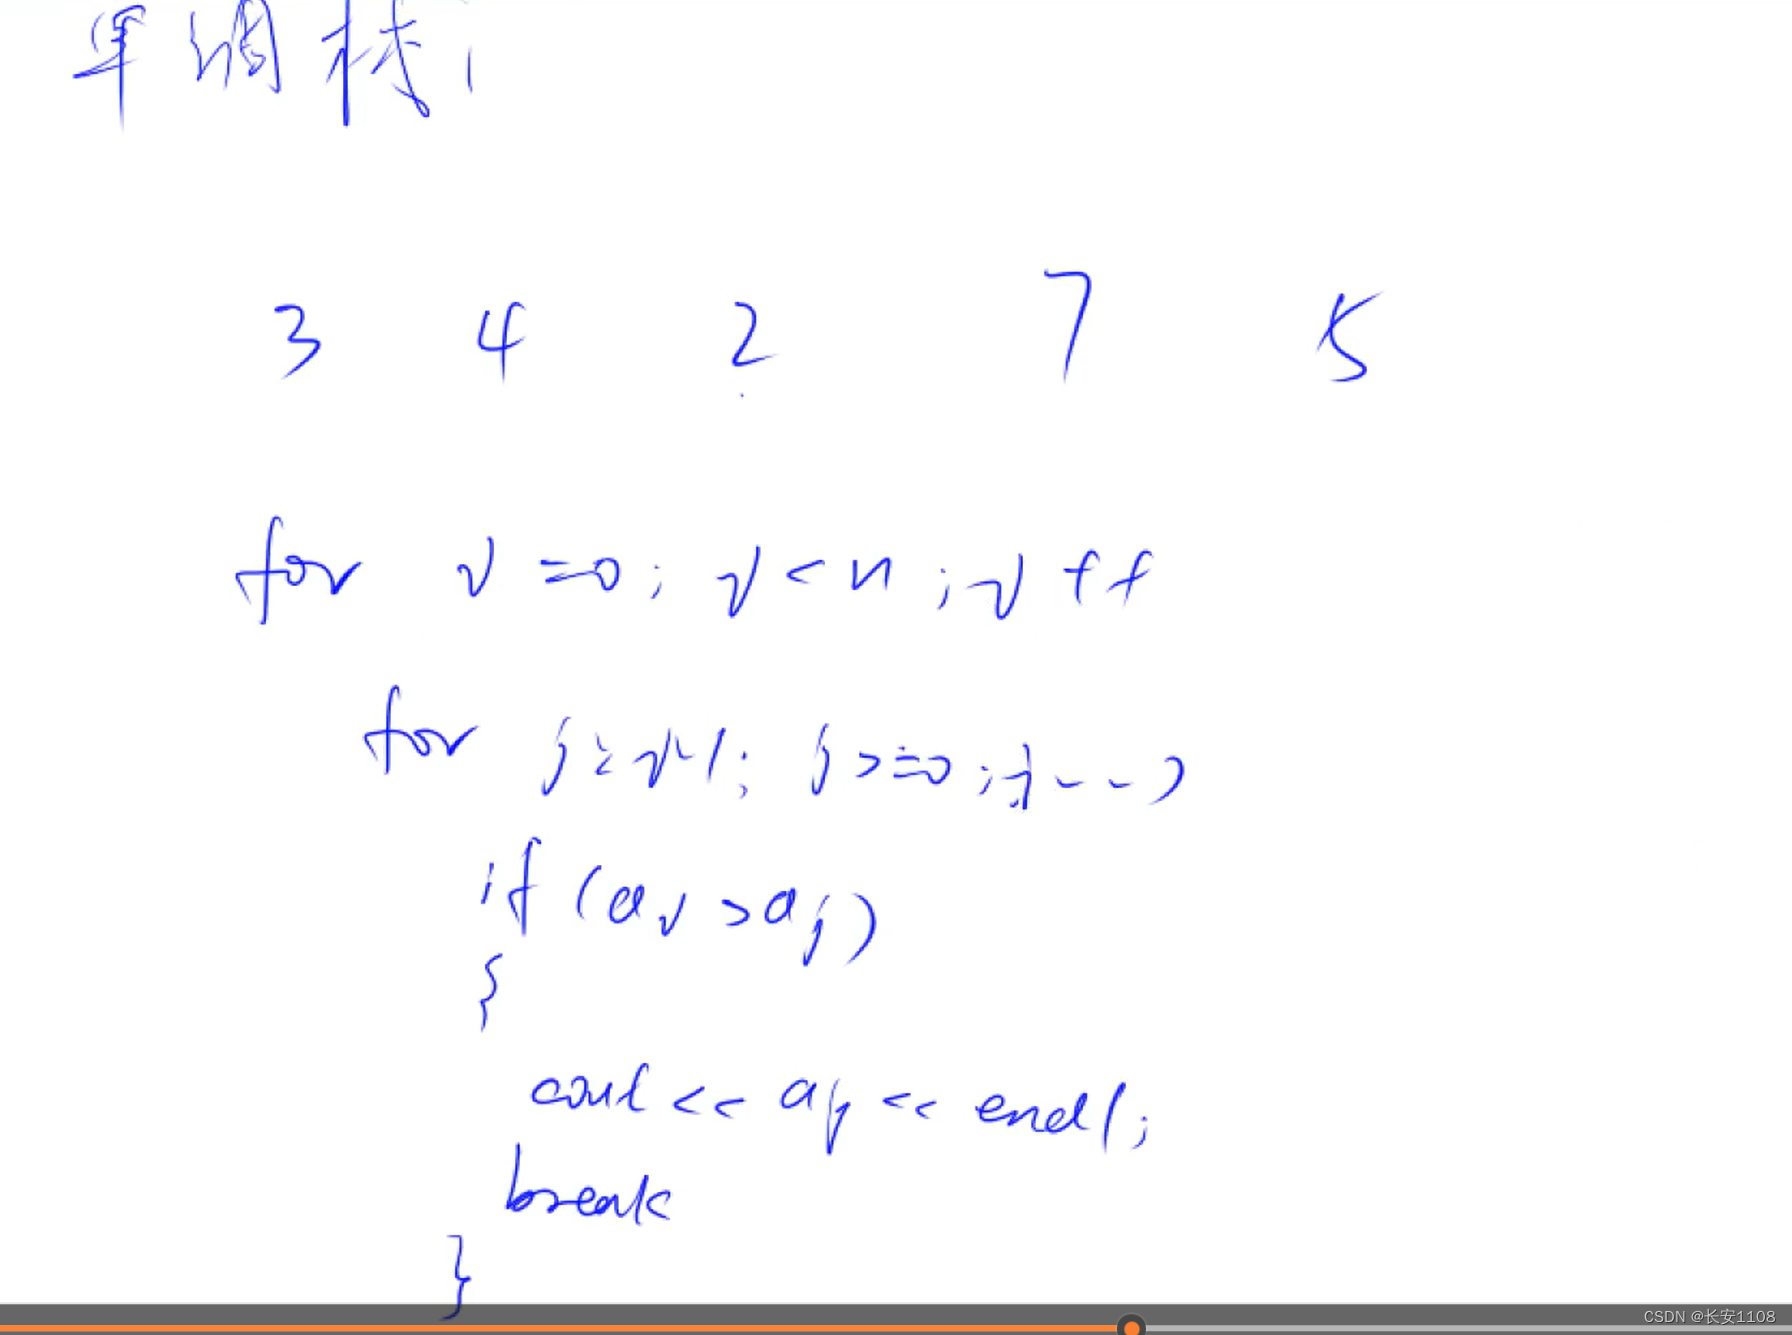 单调栈:
3 4 2 7 5
for i=0; i<n; i++
for j=i-1; j>=0; j--)
if (ai >aj)
{
cout << aj << endl;
break
}
CSDN @长安1108